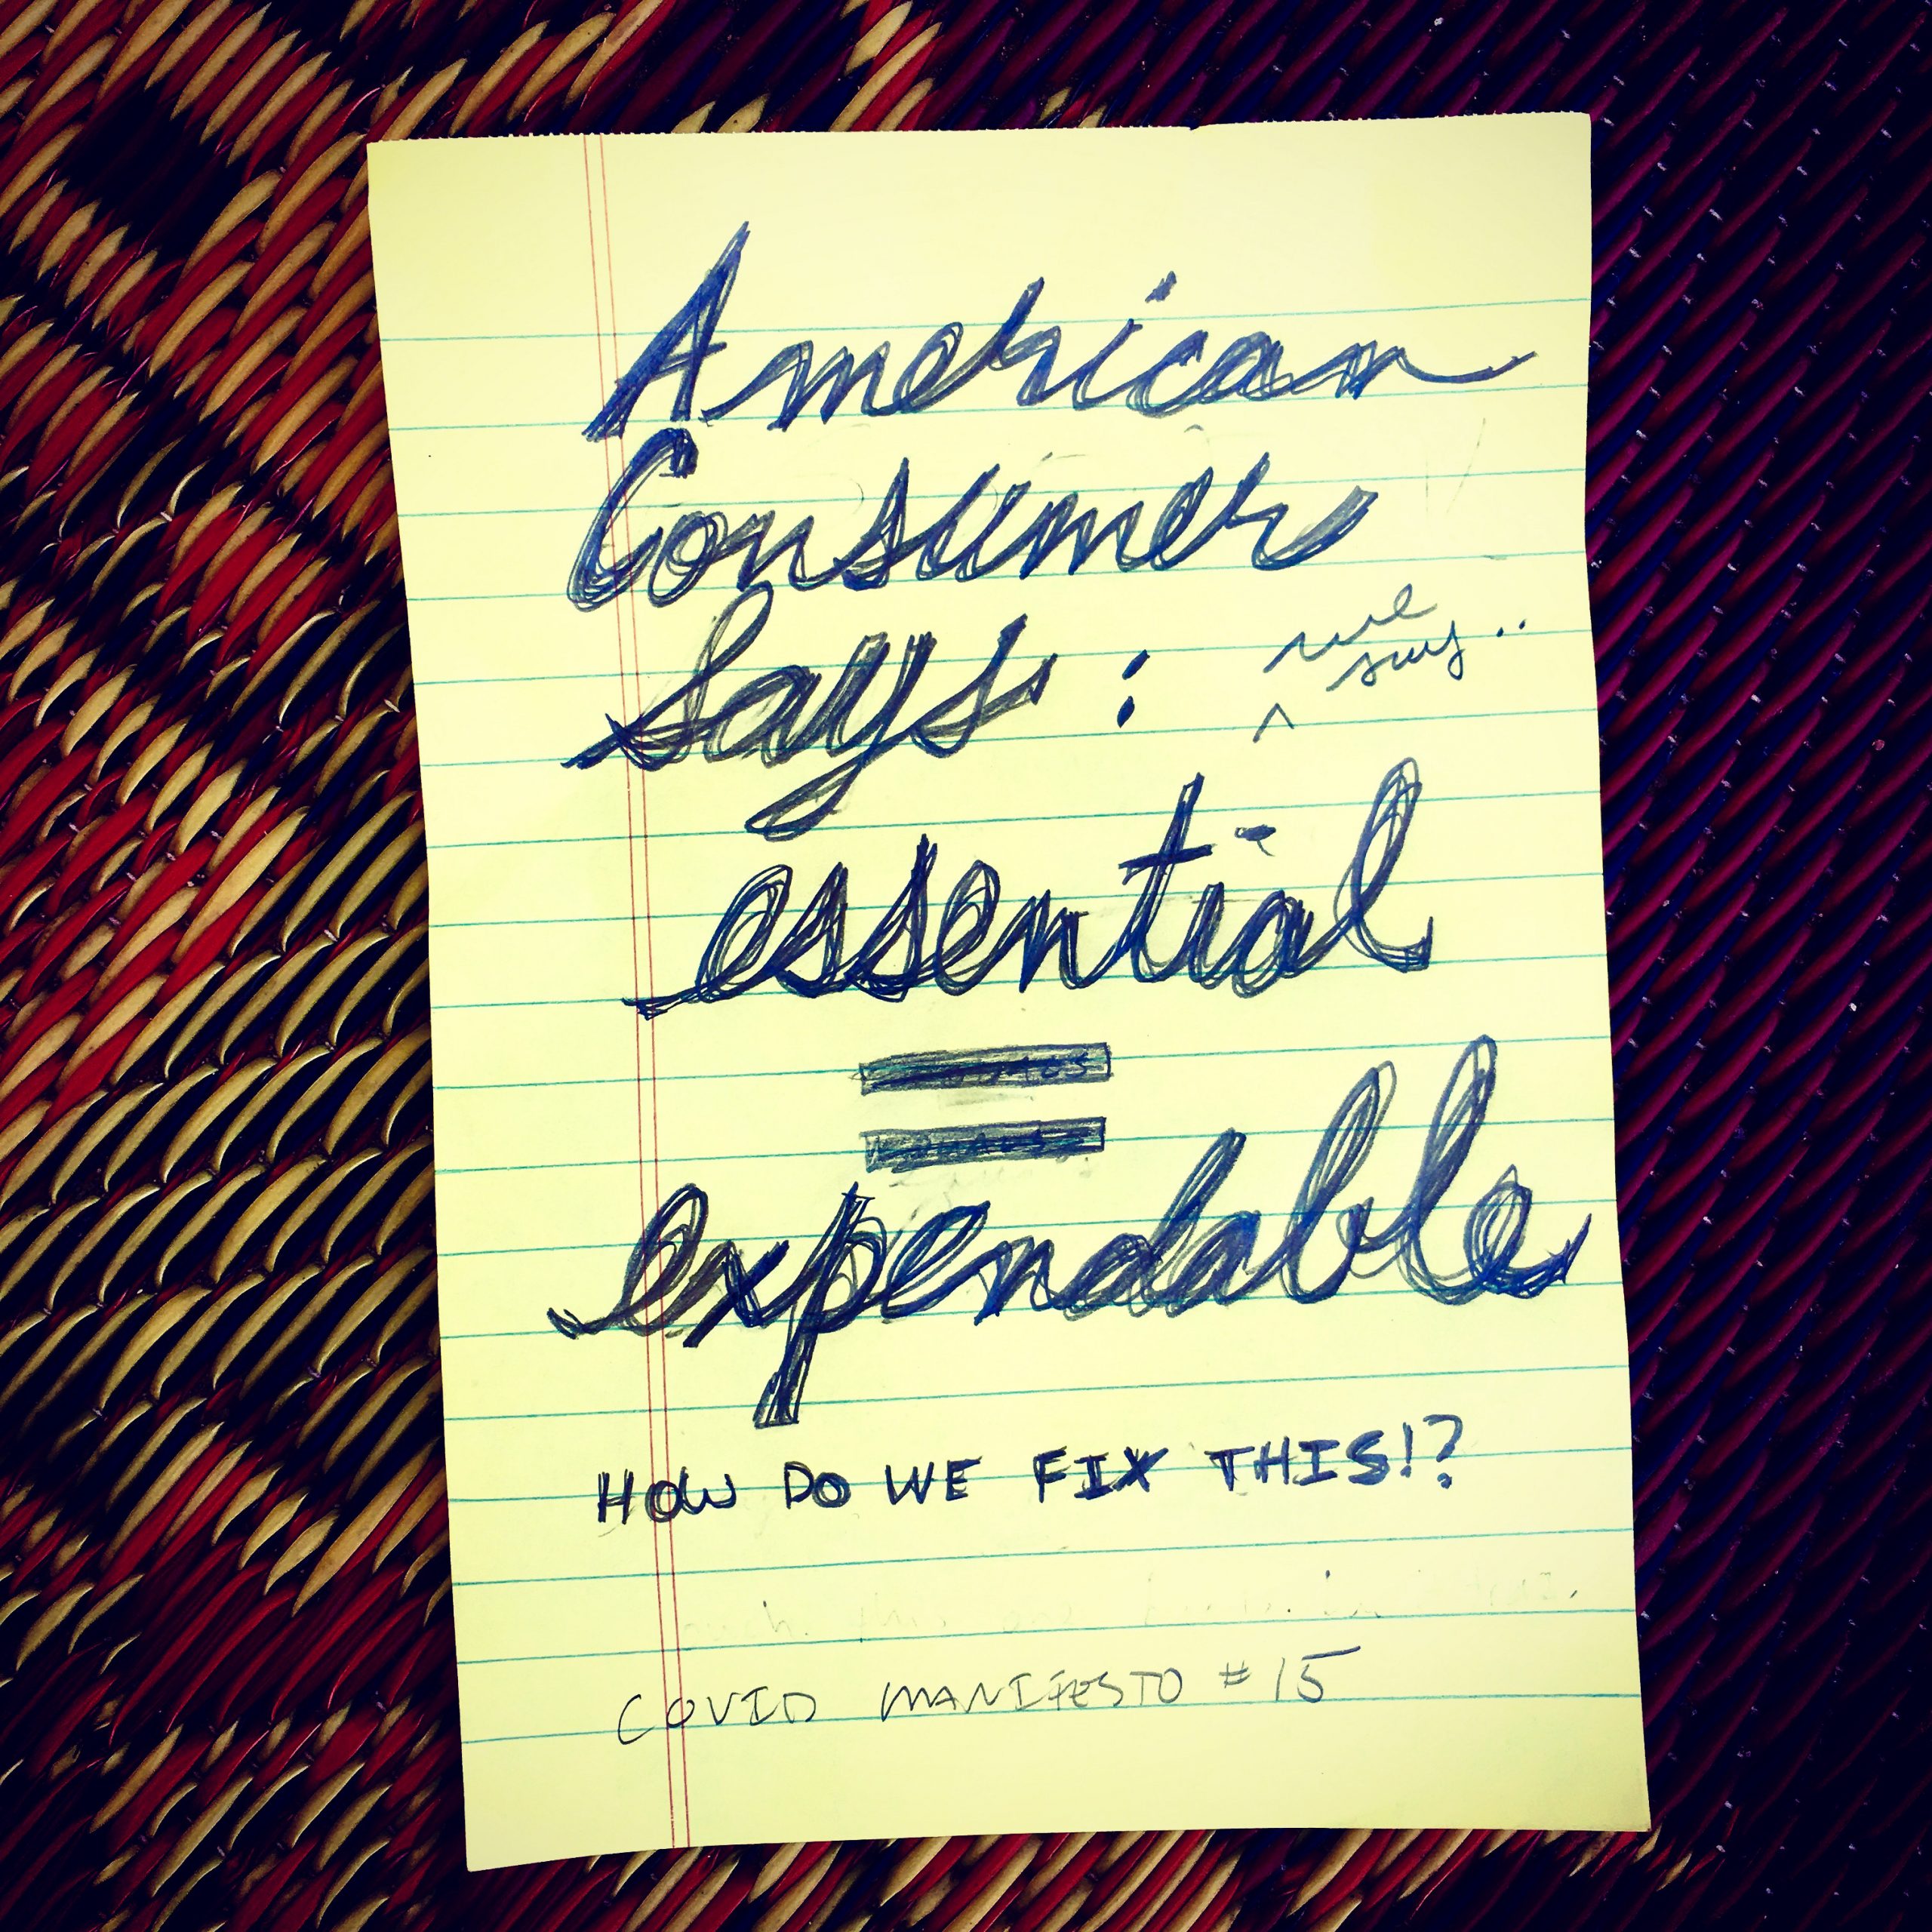 American
Consumer
says :
^ we
say..
essential
=
expendable
HOW DO WE FIX THIS!?
COVID MANIFESTO #15